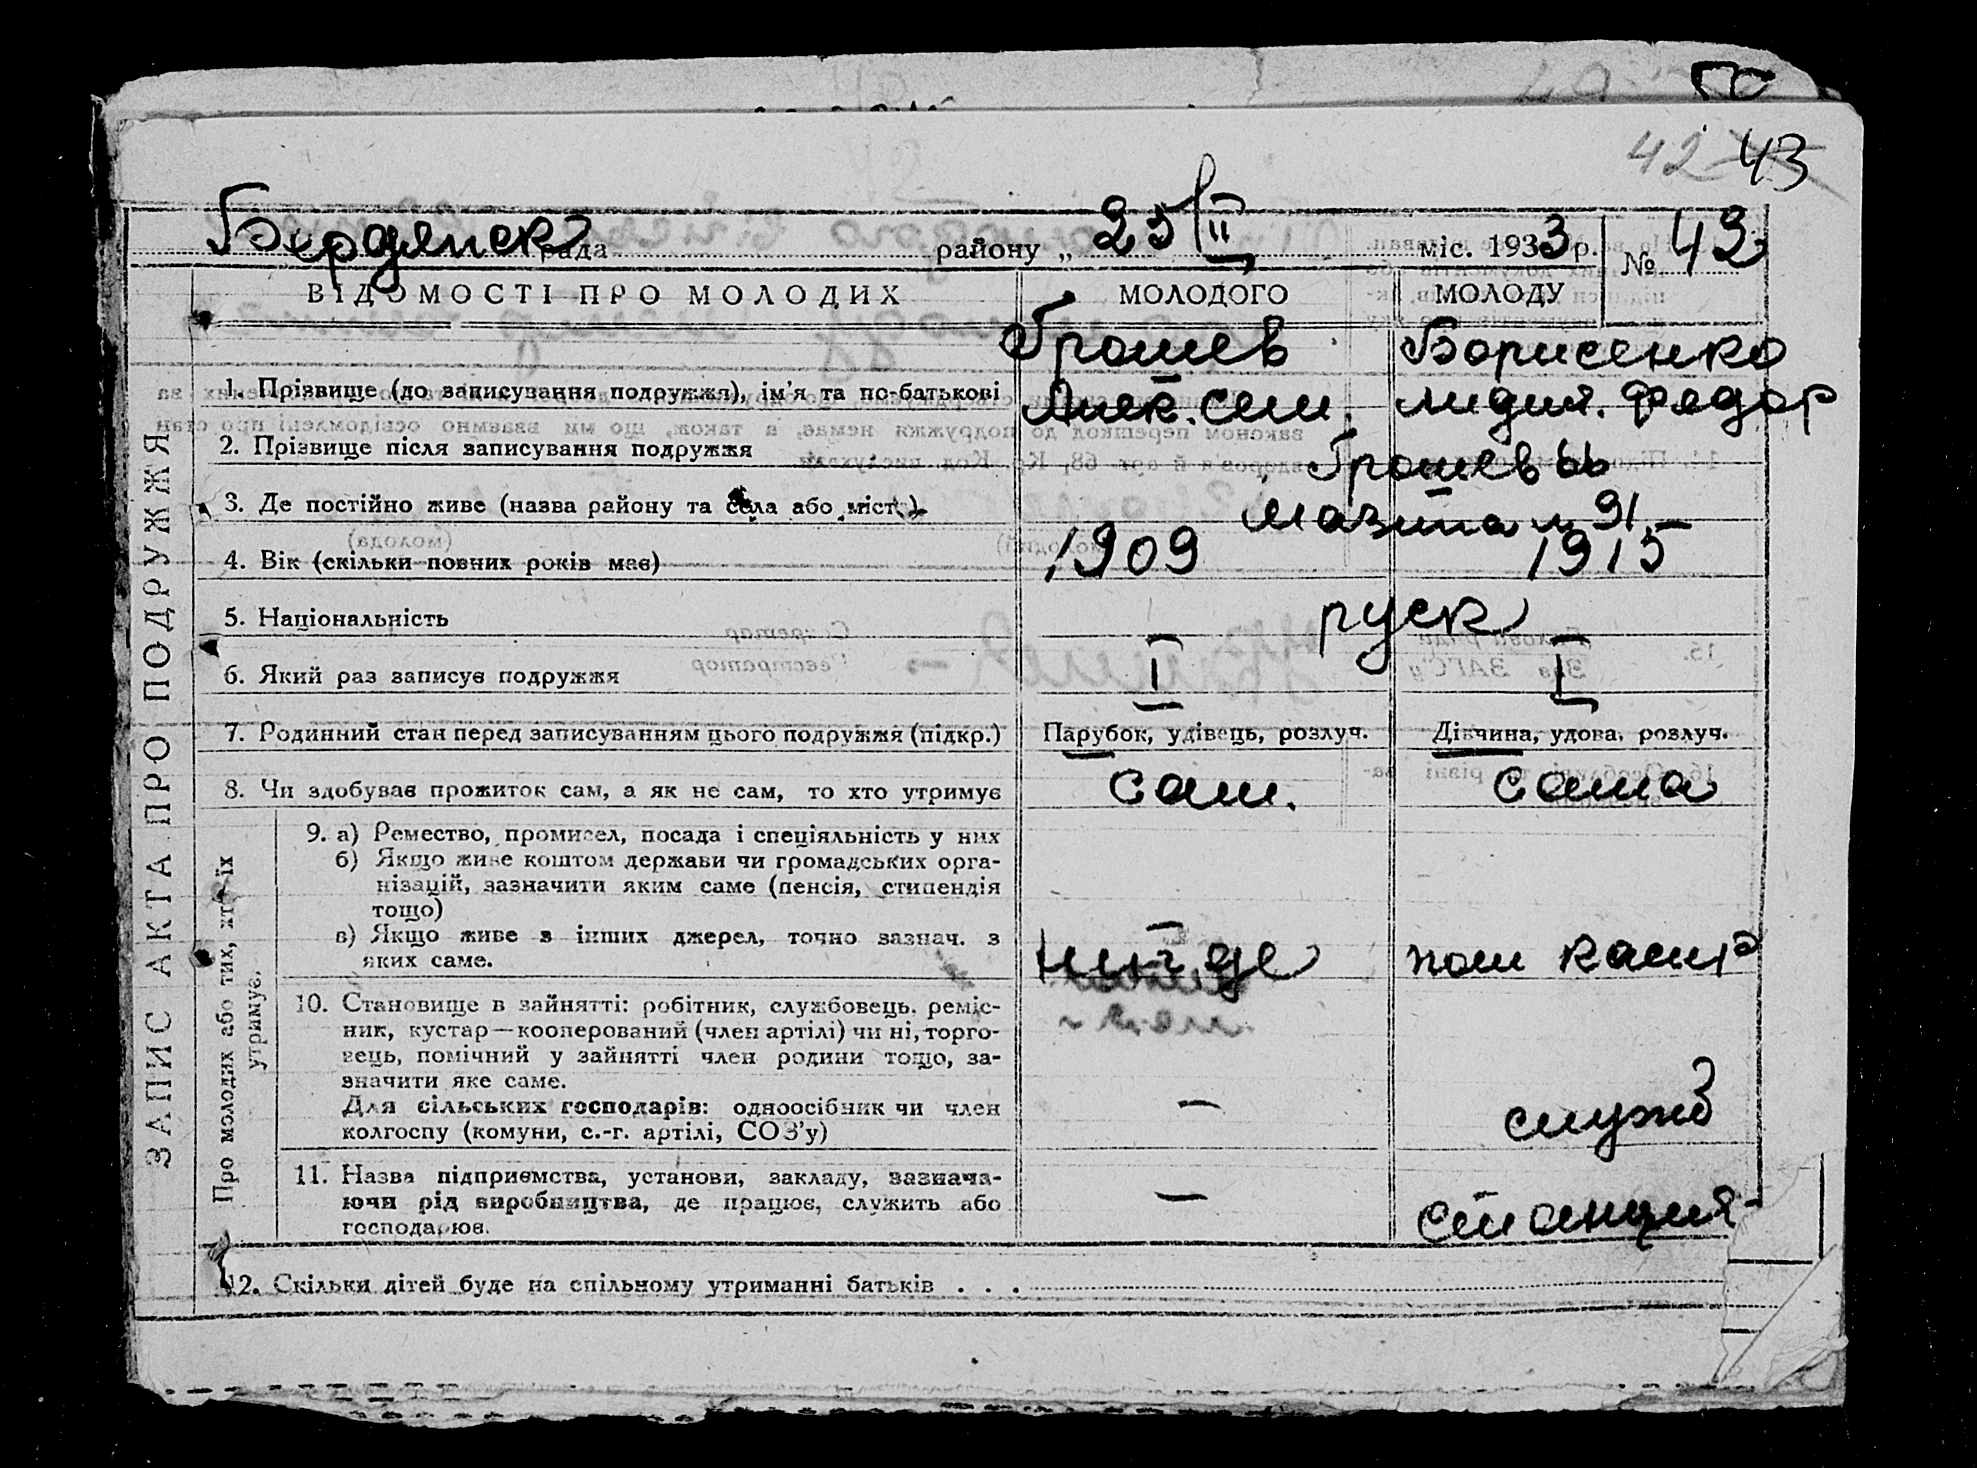 42 43
Бердянск рада району „ 25/II міс. 1933 р. № 42
ВІДОМОСТІ ПРО МОЛОДИХ МОЛОДОГО МОЛОДУ
Грошев Борисенко
1. Прізвище (до записування подружжя), ім'я та по-батькові Алек. Сем. Лидия. Федор
2. Прізвище після записування подружжя Грошевы
3. Де постійно живе (назва району та села або міста) Мазина 91
4. Вік (скільки повних років має) 1909 1915
5. Національність руск
6. Який раз записує подружжя I I
7. Родинний стан перед записуванням цього подружжя (підкр.) Парубок, удівець, розлуч. Дівчина, удова, розлуч.
8. Чи здобуває прожиток сам, а як не сам, то хто утримує сам. сама
ЗАПИС АКТА ПРО ПОДРУЖЖЯ
Про молодих або тих, хто їх утримує.
9. а) Ремество, промисел, посада і спеціяльність у них
б) Якщо живе коштом держави чи громадських орга-
нізацій, зазначити яким саме (пенсія, стипендія
тощо)
в) Якщо живе з інших джерел, точно зазнач. з
яких саме. нигде пом касир
10. Становище в зайнятті: робітник, службовець, реміс-
ник, кустар—кооперований (член артілі) чи ні, торго-
вець, помічний у зайнятті член родини тощо, за-
значити яке саме.
Для сільських господарів: одноосібник чи член — служб
колгоспу (комуни, с.-г. артілі, СОЗ'у)
11. Назва підприємства, установи, закладу, зазнача-
ючи рід виробництва, де працює, служить або — станция
господарює.
12. Скільки дітей буде на спільному утриманні батьків . . .